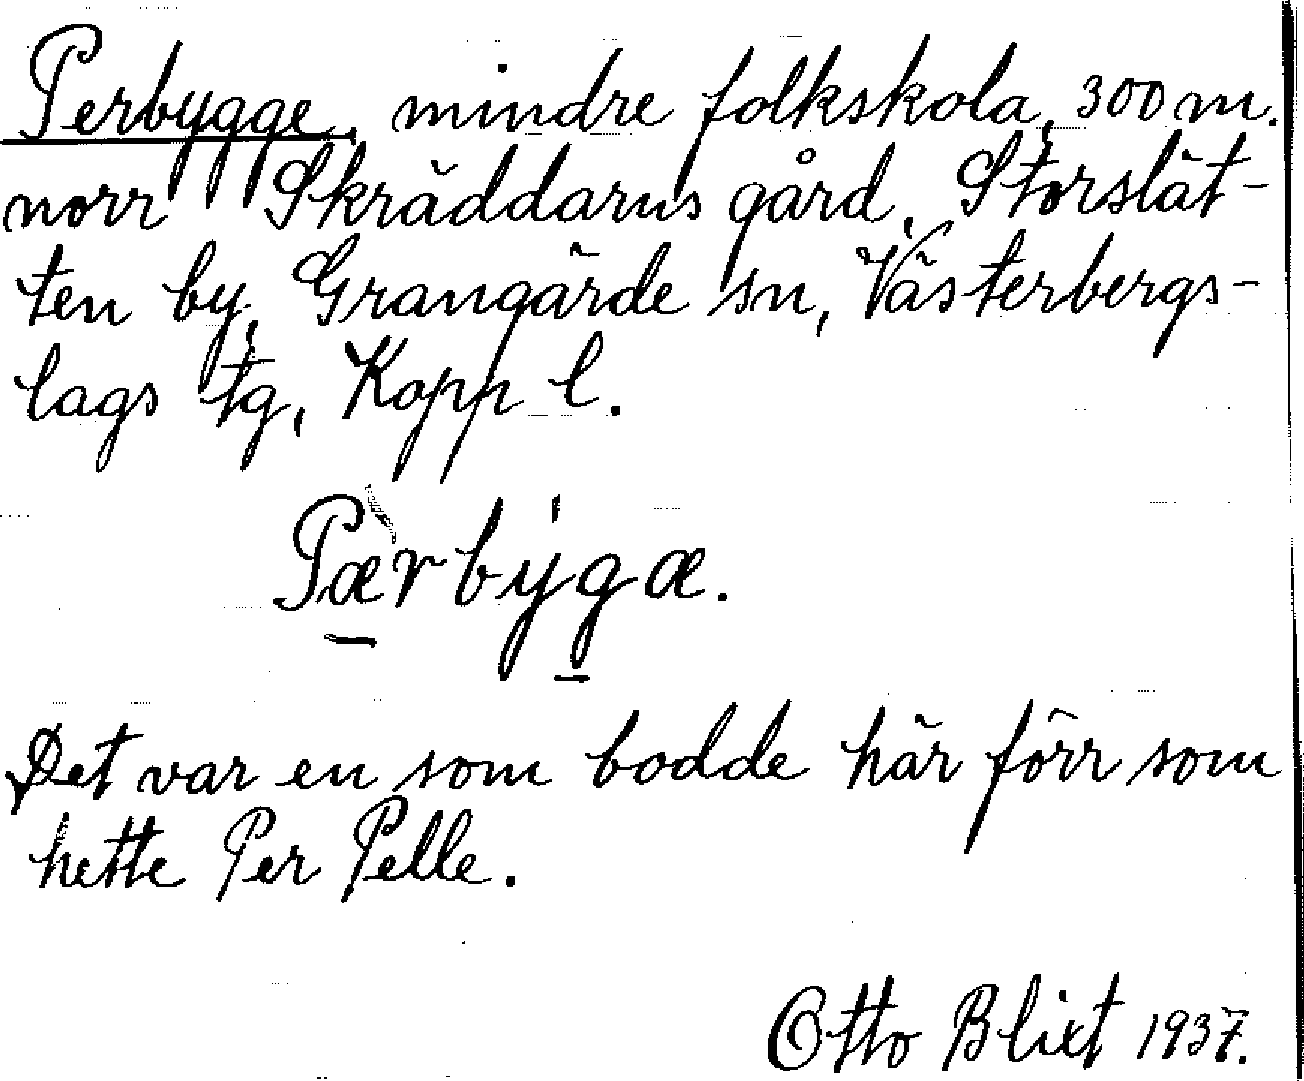 Perbygge, mindre folkskola, 300 m.
norr Skräddarns gård, Storslät-
ten by, Grangärde sn, Västerbergs-
lags tg, Kopp l.
Pærbygæ.
Det var en som bodde här förr som
hette Per Pelle.
Otto Blixt 1937.